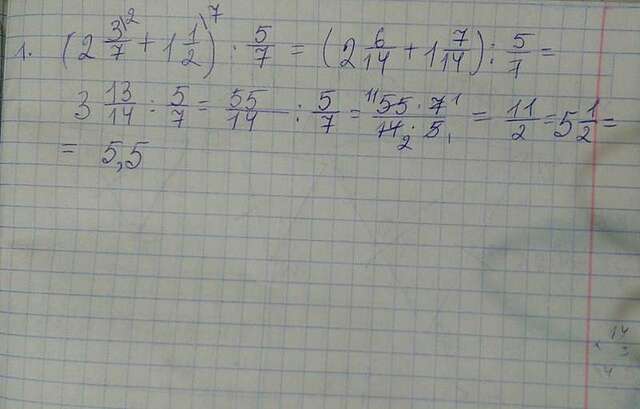 1. (2 3/7 \2 + 1 1/2 \7) : 5/7 = (2 6/14 + 1 7/14) : 5/7 =
3 13/14 : 5/7 = 55/14 : 5/7 = 11 55 · 7 1 / 14 2 · 5 1 = 11/2 = 5 1/2 =
= 5,5
14
× 3
4